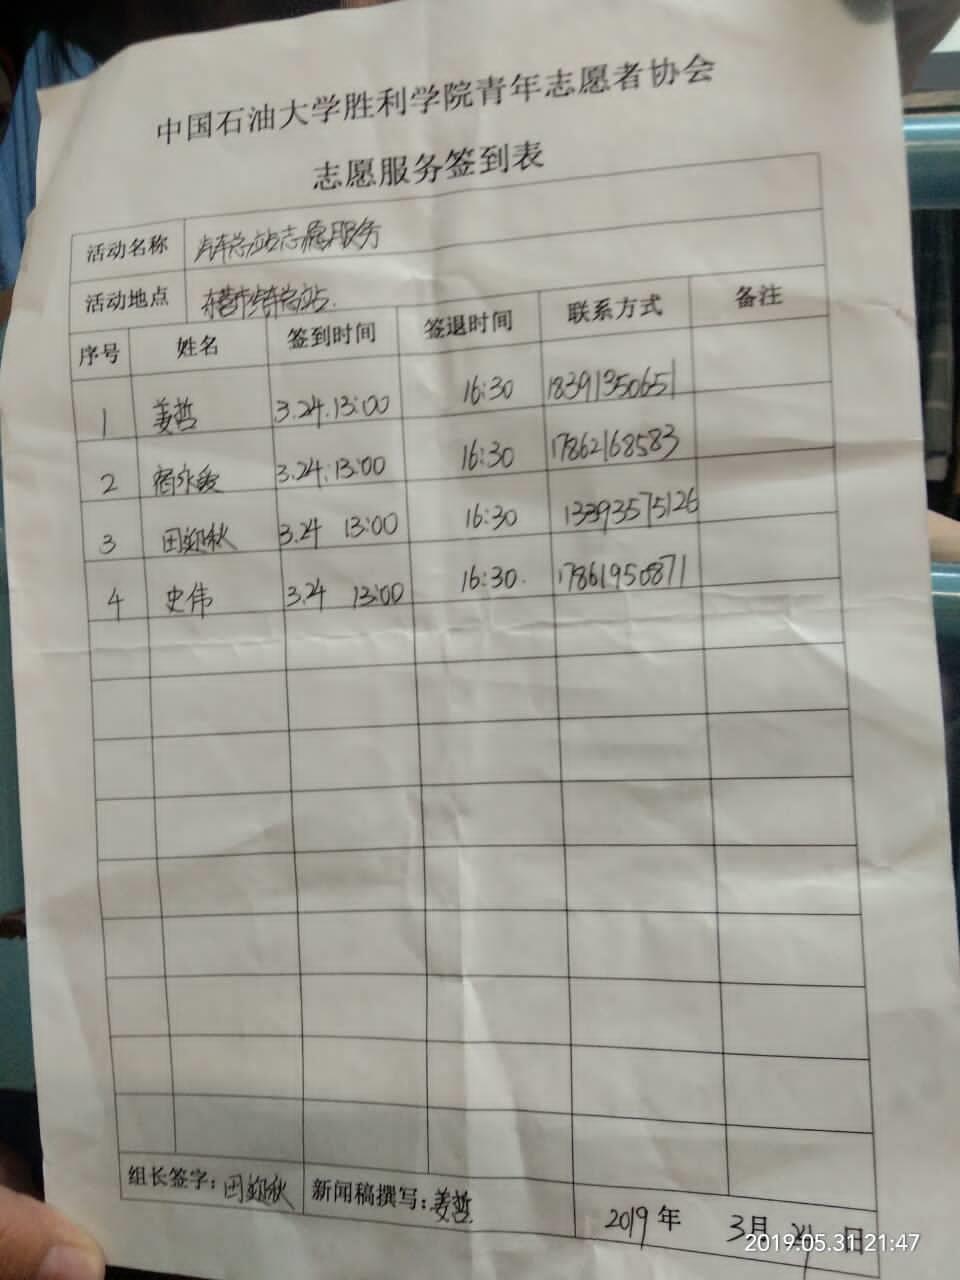 中国石油大学胜利学院青年志愿者协会
志愿服务签到表
活动名称 汽车总站志愿服务
活动地点 东营市汽车总站.
序号 姓名 签到时间 签退时间 联系方式 备注
1 姜哲 3.24.13:00 16:30 18391350651
2 3.24.13:00 16:30 17862168583
3 田迎秋 3.24 13:00 16:30 13393575126
4 史伟 3.24 13:00 16:30. 17861950871
组长签字: 田迎秋 新闻稿撰写: 姜哲 2019年 3月 24日
2019.05.31 21:47